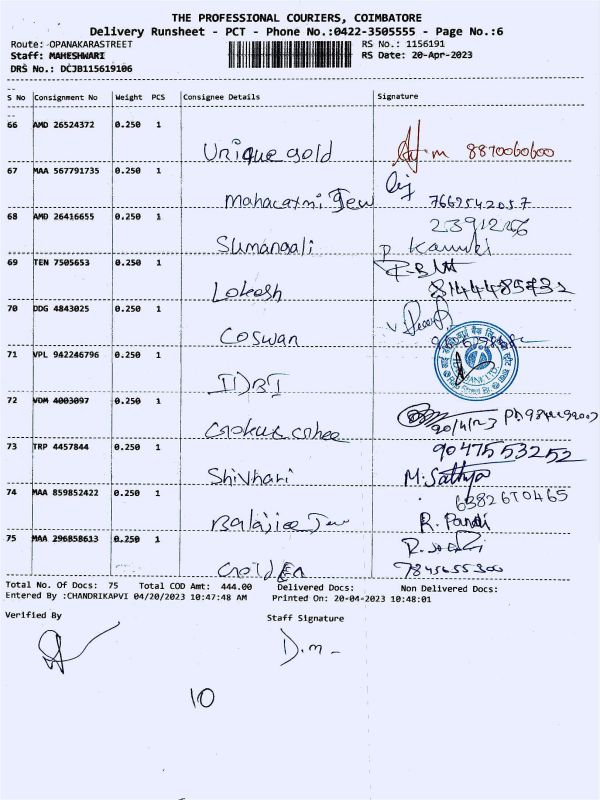 THE PROFESSIONAL COURIERS, COIMBATORE
Delivery Runsheet - PCT - Phone No.:0422-3505555 - Page No.:6
Route: OPANAKARASTREET RS No.: 1156191
Staff: MAHESHWARI RS Date: 20-Apr-2023
DRS No.: DCJB115619106
S No Consignment No Weight PCS Consignee Details Signature
66 AMD 26524372 0.250 1
Unique gold 8870060600
67 MAA 567791735 0.250 1
Mahalaxmi Jew 7667542057
68 AMD 26416655 0.250 1 2391246
Sumangali
69 TEN 7505653 0.250 1
Lokesh 8144485732
70 DDG 4843025 0.250 1
Coswan
71 VPL 942246796 0.250 1
IDBI
72 VDM 4003097 0.250 1
20/4/23
73 TRP 4457844 0.250 1 9047553252
Shivhari M. Sathya
74 MAA 859852422 0.250 1 6382670465
Balajiee Jew R. Pandi
75 MAA 296858613 0.250 1
Golden 7845655300
Total No. Of Docs: 75 Total COD Amt: 444.00 Delivered Docs: Non Delivered Docs:
Entered By :CHANDRIKAPVI 04/20/2023 10:47:48 AM Printed On: 20-04-2023 10:48:01
Verified By Staff Signature
D.m
10